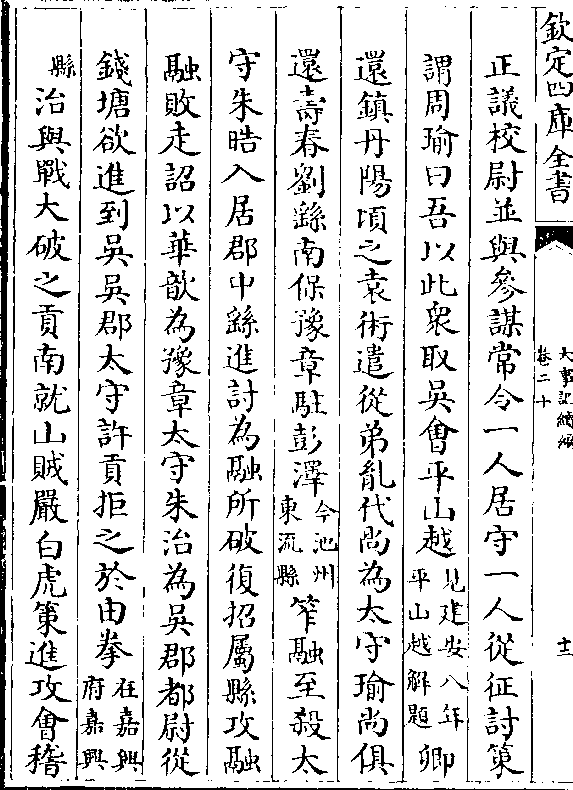 欽定四庫全書
大事記續編
卷二十
十二
正議校尉並與參謀常令一人居守一人從征討策
謂周瑜曰吾以此衆取吳會平山越見建安八年平山越解題卿
還鎮丹陽頃之袁術遣從弟胤代尚為太守瑜尚俱
還壽春劉繇南保豫章駐彭澤今池州東流縣笮融至殺太
守朱晧入居郡中繇進討為融所破復招屬縣攻融
融敗走詔以華歆為豫章太守朱治為吳郡都尉從
錢塘欲進到吳吳郡太守許貢拒之於由拳在嘉興府嘉興
縣治與戰大破之貢南就山賊嚴白虎策進攻會稽